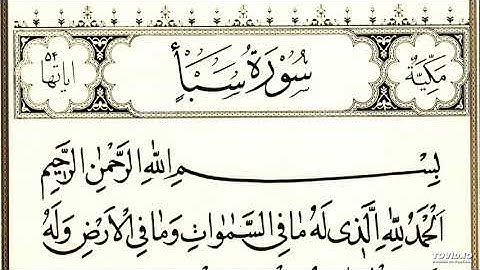 مَكِّيَّةٌ
سُورَةُ سَبَأٍ
٥٤
اياتها
بِسْمِ اللهِ الرَّحْمٰنِ الرَّحِيمِ
اَلْحَمْدُ لِلّٰهِ الَّذِى لَهُ مَا فِى السَّمٰوَاتِ وَمَا فِى الْاَرْضِ وَلَهُ
TOVID.IO